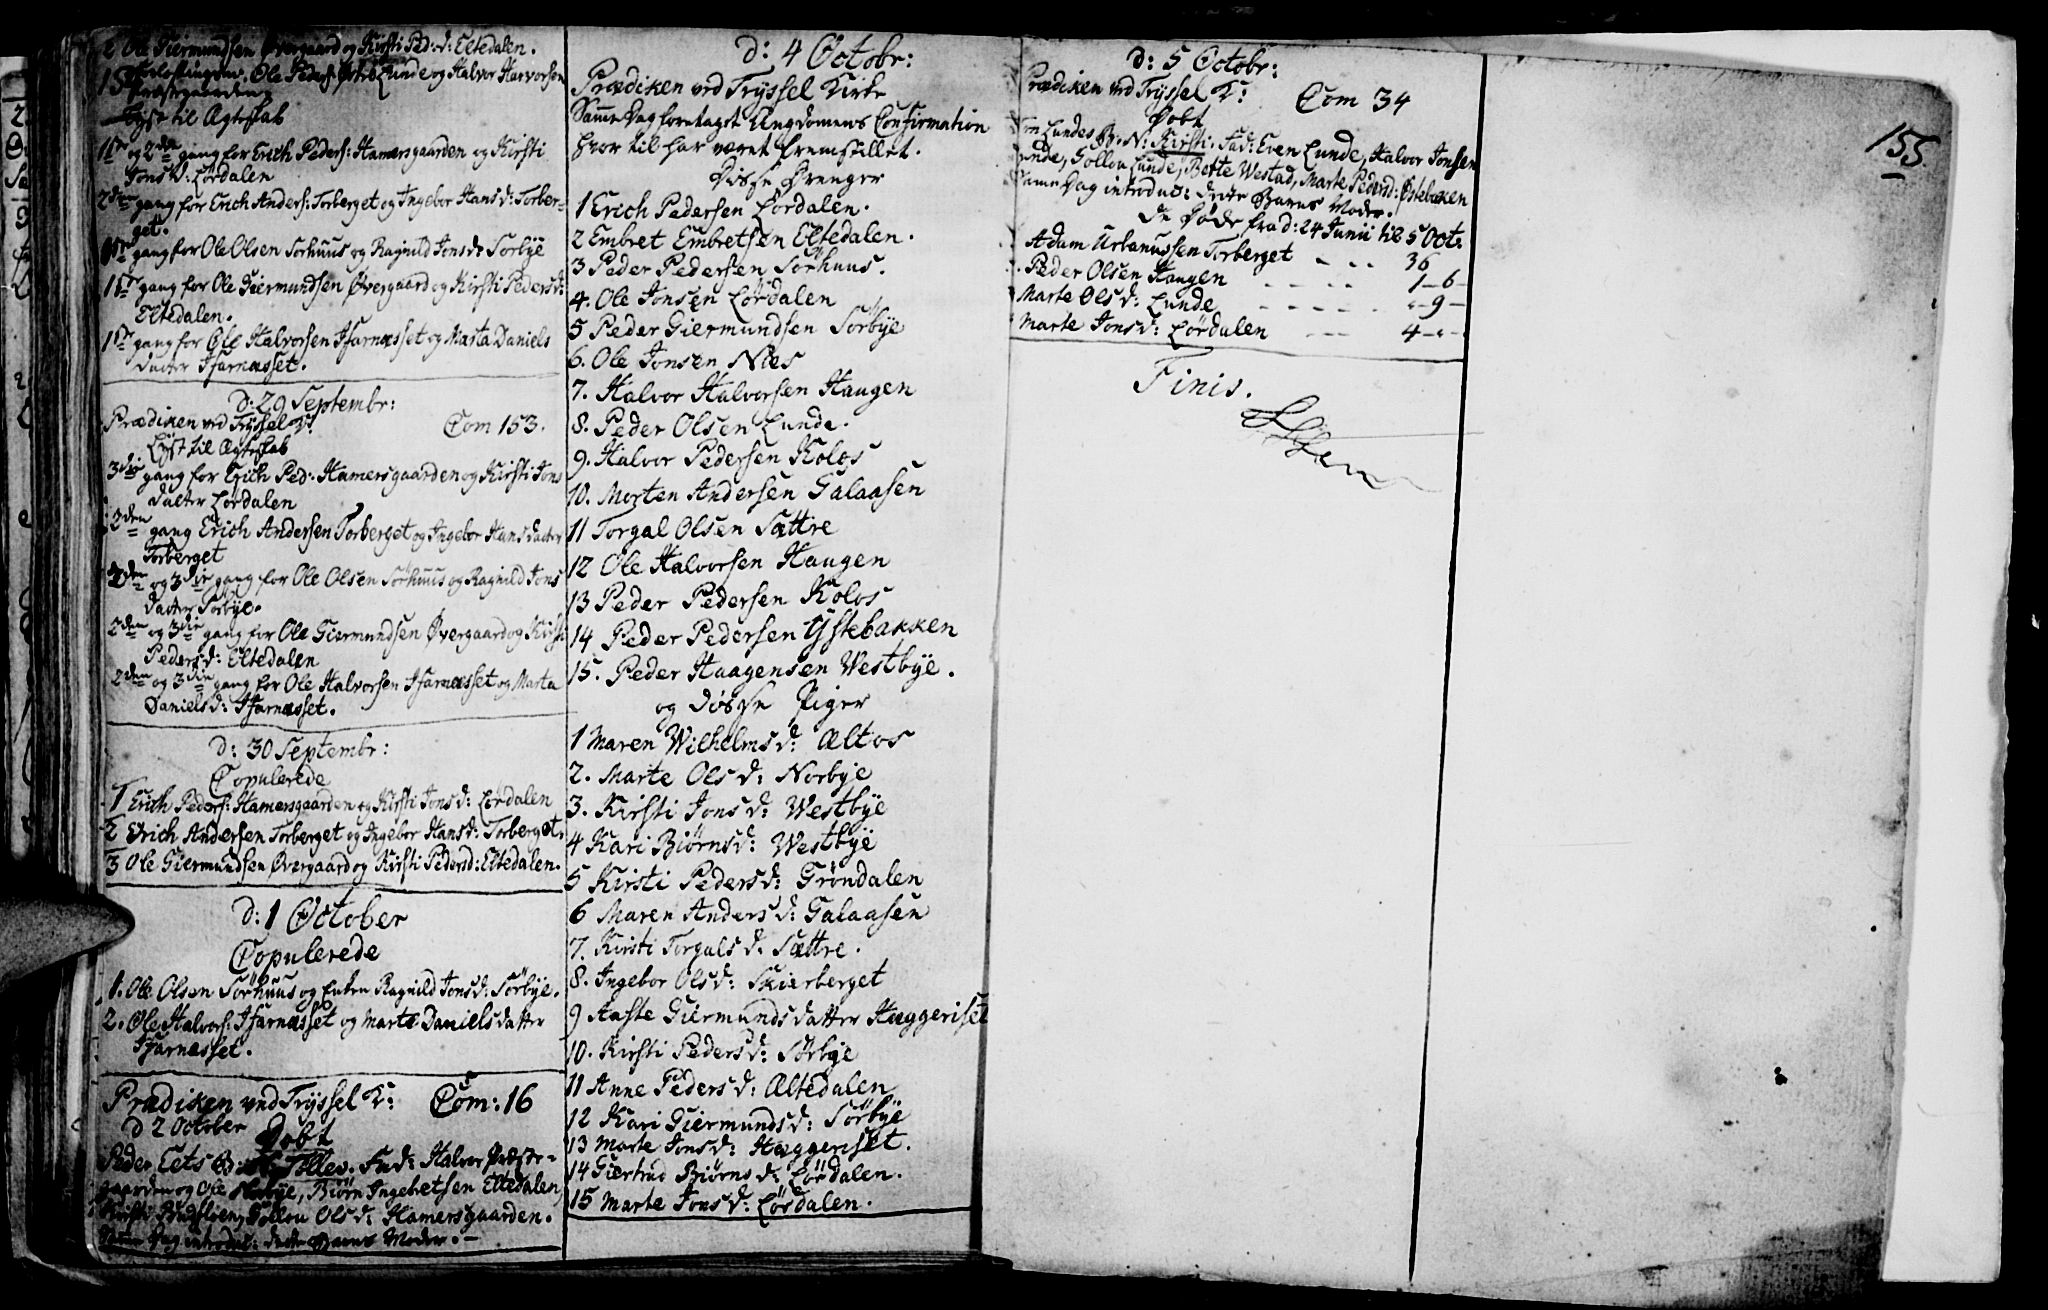 2 Ole Giermundsen Øvergaard og Kirsti Ped: d: Eltedalen.
Forlovningsm: Ole Peders: Østbÿ Lunde og Halvor Harvorsen
Præstegaarden
Lÿst til Ægteskab
1ste og 2den gang for Erich Peders: Hamersgaarden og Kirsti
Jons d: Lördalen
2den gang for Erich Anders: Torberget og Ingebor Hans d: Torber-
get.
1ste gang for Ole Olsen Sörhuus og Ragnild Jons d: Sörbÿe
1ste gang for Ole Giermundsen Øvergaard og Kirsti Peders d:
Eltedalen.
1ste gang for Ole Halvorsen Jfarnæsset og Marta Daniels
datter Jfarnæsset.
d: 29 Septembr:
Prædiken ved Trÿssel K: Com 153.
Lÿst til Ægteskab
3die gang for Erich Ped: Hamersgaarden og Kirsti Jons
datter Lördalen
3den gang Erich Andersen Torberget og Ingebor Hans datter
Torberget
2den og 3die gang for Ole Olsen Sörhuus og Ragnild Jons
datter Sörbÿe.
2den og 3die gang for Ole Giermundsen Øvergaard og Kirsti
Peders d: Eltedalen
2den og 3die gang for Ole Halvorsen Jfarnæsset og Marta
Daniels d: Jfarnæsset.
d: 30 Septembr:
Copulerede
1 Erich Peders: Hamersgaarden og Kirsti Jons d: Lördalen
2 Erich Andersen Torberget og Ingebor Hans d: Torberget.
3 Ole Giermundsen Øvergaard og Kirsti Peders d: Eltedalen.
d: 1 October
Copulerede
1. Ole Olsen Sörhuus og Enken Ragnild Jons d: Sörbÿe.
2. Ole Halvors: Jfarnæsset og Marte Daniels datter
Jfarnæsset.
Prædiken ved Trÿssel K: Com: 16
d 2 October Döbt
Peder Eets B: N: Tollev. Fad: Halvor Præste-
gaarden og Ole Norbÿe, Biørn Ingebretsen Eltedalen,
Kirsti Gollou Ols d: Hamersgaarden.
Same Dag introduc: dette Barns Moder.
d: 4 Octobr:
Prædiken ved Trÿssel Kirke
Same Dag foretaget Ungdomens Confirmation
hvor til har været fremstillet.
Disse Drenger
1 Erich Pedersen Lördalen.
2 Embret Embretsen Eltedalen.
3 Peder Pedersen Sörhuus.
4. Ole Jonsen Lördalen
5 Peder Giermundsen Sörbÿe
6. Ole Jonsen Næs
7. Halvor Halvorsen Haugen
8. Peder Olsen Lunde.
9. Halvor Pedersen Kolos
10. Morten Andersen Galaasen
11 Torgal Olsen Sættre
12 Ole Halvorsen Haugen
13 Peder Pedersen Kolos
14 Peder Pedersen Ÿstebakken
15. Peder Haagensen Westbÿe.
og Disse Piger
1 Maren Wilhelms d: Æltos
2. Marte Ols d: Norbÿe
3. Kirsti Jons d: Westbÿe
4 Kari Biørns d: Westbÿe
5 Kirsti Peders d: Gröndalen
6 Maren Anders d: Galaasen
7. Kirsti Torgals d. Sættre.
8. Ingebor Ols d: Skierberget
9 Aaste Giermunds datter Haggeriset
10. Kirsti Peders d: Sörbÿe
11 Anne Peders d: Æltedalen
12 Kari Giermunds d: Sörbÿe
13 Marte Jons d: Haggeriset.
14 Giertrud Biörns d: Lördalen.
15 Marte Jons d: Lördalen.
d: 5 Octobr:
Prædiken ved Trÿssel K: Com 34
Döbt
Lundes B: N: Kirsti. Fad: Even Lunde, Halvor Jonsen
Lunde, Gollou Lunde, Berte Westad, Marte Peders d: Østebaken
Same Dag introduc: dette Barns Moder.
De Døde fra d: 24 Junii til 5 Oct.
Adam Urbanussen Torberget - - - 36
Peder Olsen Haugen - - - - 1 - 6 -
Marte Ols d: Lunde - - - - - " - 9 -
Marte Jons d: Lördalen - - - 4 - " -
Finis.
155